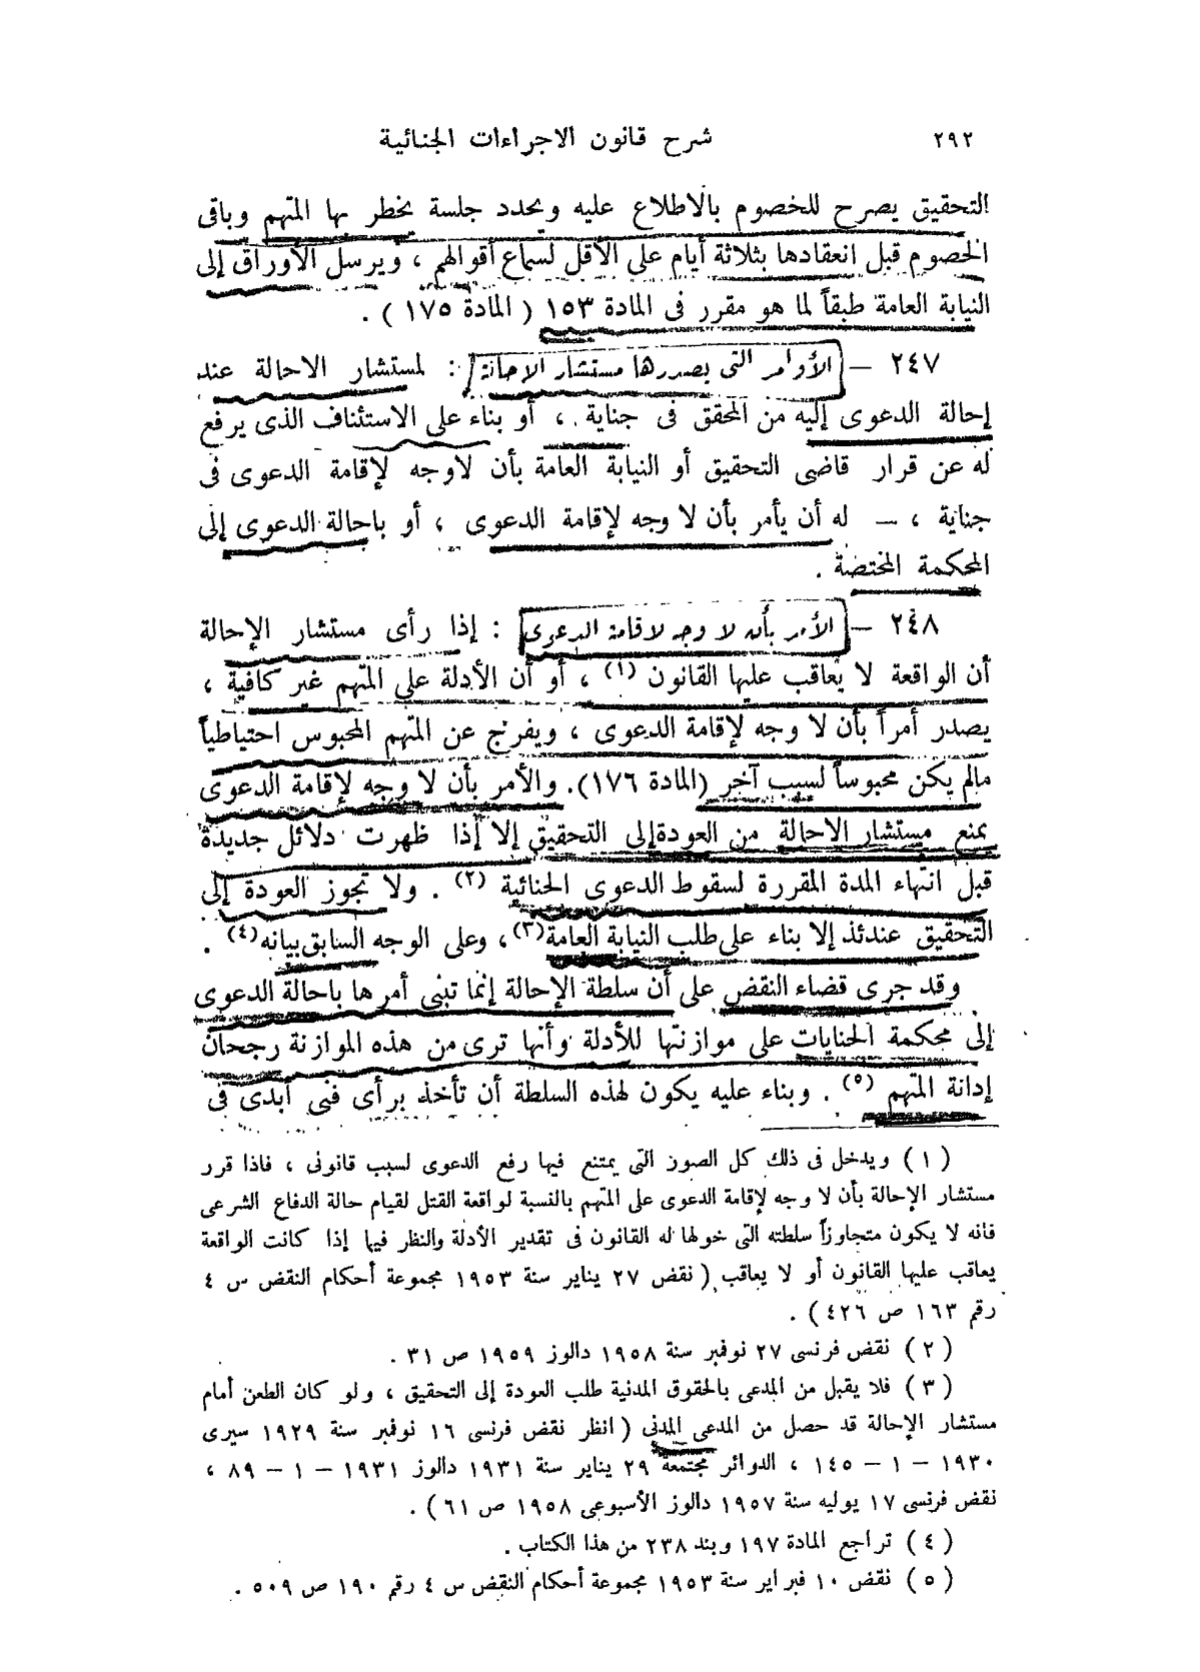 ٢٩٢
شرح قانون الاجراءات الجنائية
التحقيق يصرح للخصوم بالاطلاع عليه ويحدد جلسة يخطر بها المتهم وباقى
الخصوم قبل انعقادها بثلاثة أيام على الأقل لسماع أقوالهم ، ويرسل الأوراق إلى
النيابة العامة طبقاً لما هو مقرر فى المادة ١٥٣ ( المادة ١٧٥ ) .
٢٤٧ — الأوامر التى يصدرها مستشار الإحالة : لمستشار الاحالة عند
إحالة الدعوى إليه من المحقق فى جناية ، أو بناء على الاستئناف الذى يرفع
له عن قرار قاضى التحقيق أو النيابة العامة بأن لاوجه لإقامة الدعوى فى
جناية ، — له أن يأمر بأن لا وجه لإقامة الدعوى ، أو باحالة الدعوى إلى
المحكمة المختصة .
٢٤٨ — الأمر بأن لا وجه لاقامة الدعوى : إذا رأى مستشار الإحالة
أن الواقعة لا يعاقب عليها القانون (١) ، أو أن الأدلة على المتهم غير كافية ،
يصدر أمراً بأن لا وجه لإقامة الدعوى ، ويفرج عن المتهم المحبوس احتياطياً
مالم يكن محبوساً لسبب آخر (المادة ١٧٦). والأمر بأن لا وجه لإقامة الدعوى
يمنع مستشار الاحالة من العودة إلى التحقيق إلا إذا ظهرت دلائل جديدة
قبل انتهاء المدة المقررة لسقوط الدعوى الجنائية (٢) . ولا تجوز العودة إلى
التحقيق عندئذ إلا بناء على طلب النيابة العامة (٣) ، وعلى الوجه السابق بيانه (٤) .
وقد جرى قضاء النقض على أن سلطة الإحالة إنما تبنى أمرها باحالة الدعوى
إلى محكمة الجنايات على موازنتها للأدلة وأنها ترى من هذه الموازنة رجحان
إدانة المتهم (٥) . وبناء عليه يكون لهذه السلطة أن تأخذ برأى فنى أبدى فى
(١) ويدخل فى ذلك كل الصور التى يمتنع فيها رفع الدعوى لسبب قانونى ، فاذا قرر
مستشار الإحالة بأن لا وجه لإقامة الدعوى على المتهم بالنسبة لواقعة القتل لقيام حالة الدفاع الشرعى
فانه لا يكون متجاوزاً سلطته التى خولها له القانون فى تقدير الأدلة والنظر فيما إذا كانت الواقعة
يعاقب عليها القانون أو لا يعاقب ( نقض ٢٧ يناير سنة ١٩٥٣ مجموعة أحكام النقض س ٤
رقم ١٦٣ ص ٤٢٦ ) .
(٢) نقض فرنسى ٢٧ نوفمبر سنة ١٩٥٨ دالوز ١٩٥٩ ص ٣١ .
(٣) فلا يقبل من المدعى بالحقوق المدنية طلب العودة إلى التحقيق ، ولو كان الطعن أمام
مستشار الإحالة قد حصل من المدعى المدنى ( انظر نقض فرنسى ١٦ نوفمبر سنة ١٩٢٩ سيرى
١٩٣٠ — ١ — ١٤٥ ، الدوائر مجتمعة ٢٩ يناير سنة ١٩٣١ دالوز ١٩٣١ — ١ — ٨٩ ،
نقض فرنسى ١٧ يوليه سنة ١٩٥٧ دالوز الأسبوعى ١٩٥٨ ص ٦١ ) .
(٤) تراجع المادة ١٩٧ وبند ٢٣٨ من هذا الكتاب .
(٥) نقض ١٠ فبراير سنة ١٩٥٣ مجموعة أحكام النقض س ٤ رقم ١٩٠ ص ٥٠٩ .